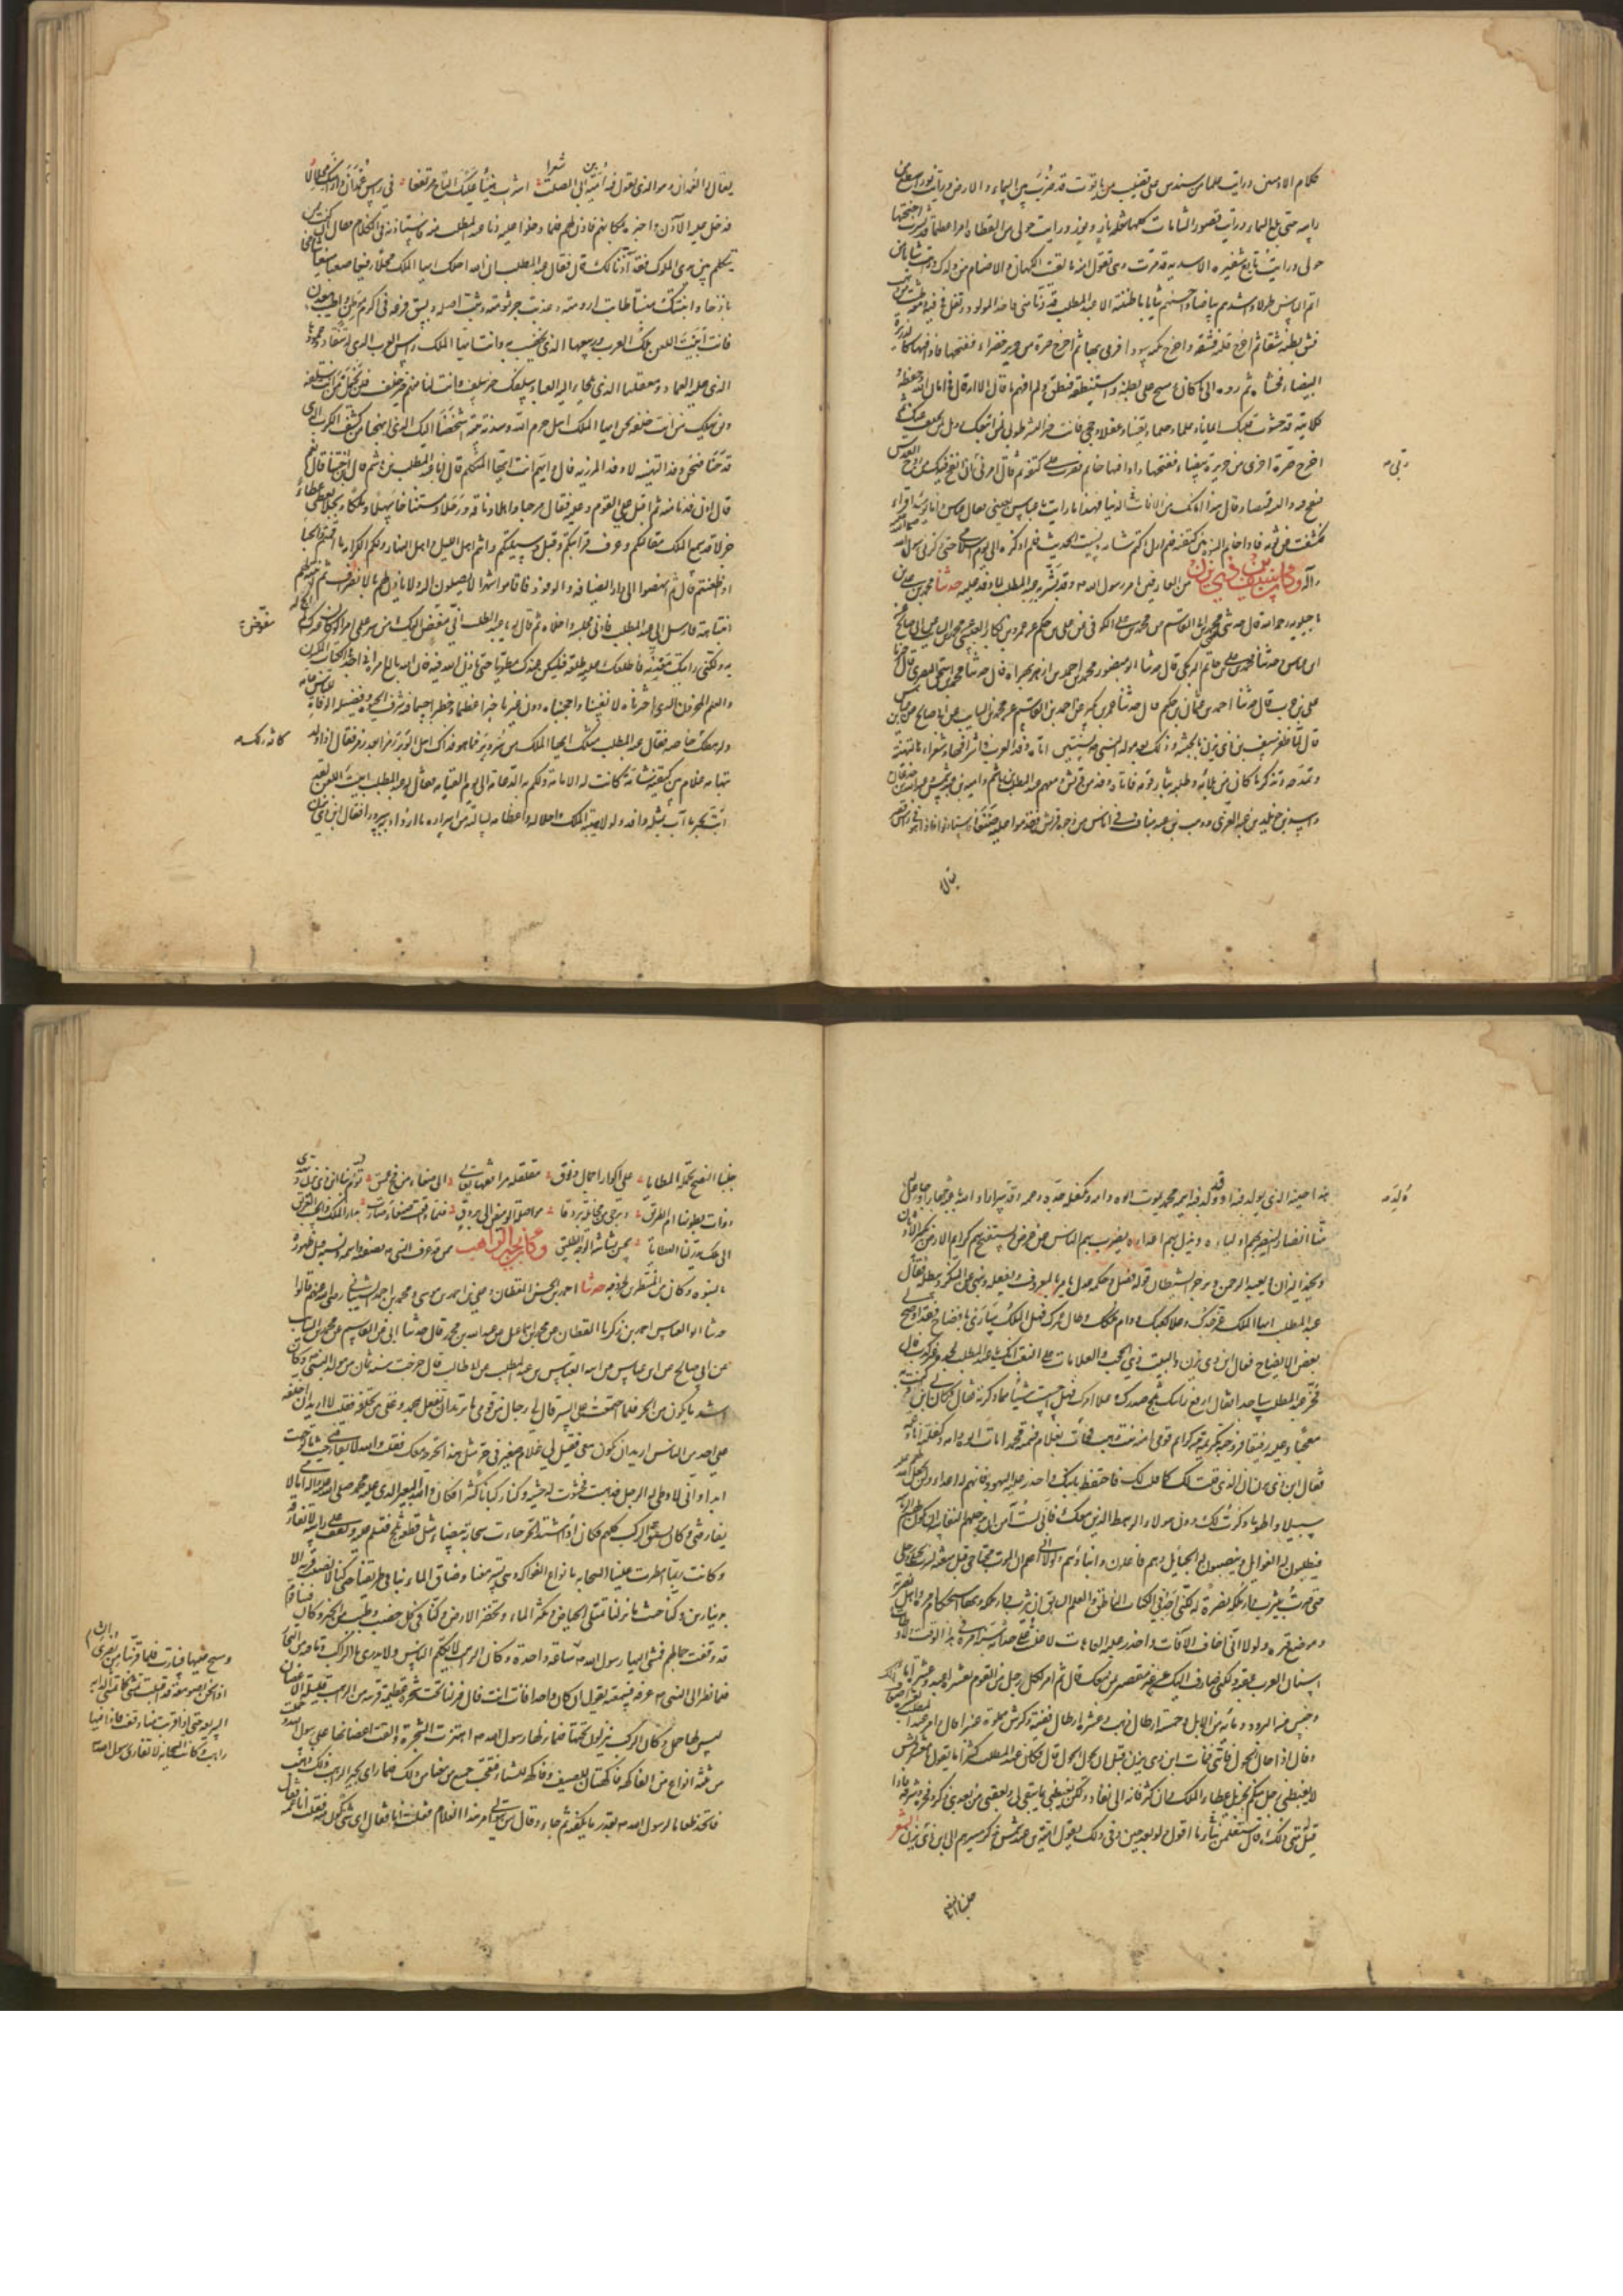 كلام الادميين ورايت علما من سندس على قضيب من ياقوت قد ضرب بين السماء والارض ورايت نورا يسطع من
راسه حتى بلغ السماء ورايت قصور الشامات كلها شعلة نار ورايت حولي من القطاة امرا عظيما قد نشرت اجنحتها
حولي ورايت شعيرة الاسدية قد مرت وهي تقول امنة ما لقيت الكهان والاصنام من ولدك ورايت شابا من
اتم الناس طولا واشدهم بياضا واحسنهم ثيابا ما ظننته الا عبد المطلب قد دنا مني فاخذ المولود وتفل في فيه ومعه طشت من ذهب
فشق بطنه شقا ثم اخرج قلبه فشقه واخرج نكتة سوداء فرمى بها ثم اخرج صرة من حرير خضراء ففتحها فاذا فيها كالذريرة
البيضاء فحشاه ثم رده الى ما كان ومسح على بطنه واستنطقه فنطق ولم افهم ما قال الا انه قال في امان الله وحفظه و
كلائته قد حشوت قلبك ايمانا وعلما وحلما ويقينا وعقلا وحكما فانت خير البشر طوبى لمن اتبعك وويل لمن تخلف عنك ثم
اخرج صرة اخرى من حريرة بيضاء ففتحها فاذا فيها خاتم فضرب على كتفيه ثم قال امرني ربي ان انفخ فيك من روح القدس
فنفخ فيه والبسه قميصا وقال هذا امانك من افات الدنيا فهذا ما رايت يا عباس بعيني فقال العباس وانا يومئذ اقراء
فكشفت عن ثوبه فاذا خاتم النبوة بين كتفيه فلم ازل اكتم شانه ونسيت الحديث فلم اذكره الى يوم اسلامي حتى ذكرني رسول الله صلى الله عليه
واله وكان سيف بن ذي يزن من العارفين بامر رسول الله وقد بشر به عبد المطلب لما وفد عليه حدثنا محمد بن علي بن
ماجيلويه رحمه الله قال حدثني محمد بن ابي القاسم عن محمد بن علي الكوفي عن علي بن حكيم عن عمرو بن بكار العبسي عن محمد بن السائب عن ابي صالح عن
ابن عباس وحدثنا محمد بن علي بن حاتم البوفكي قال حدثنا ابو منصور محمد بن احمد بن ازهر بهراة قال حدثنا محمد بن اسحق البصري قال اخبرنا
علي بن حرب قال حدثنا احمد بن عثمان بن حكيم قال حدثنا عمرو بن بكر عن احمد بن القاسم عن محمد بن السائب عن ابي صالح عن ابن عباس
قال لما ظفر سيف بن ذي يزن بالحبشة وذلك بعد مولد النبي بسنتين اتاه وفد العرب واشرافها وشعراؤها بالتهنئة
وتمدحه وتذكر ما كان من بلائه وطلبه بثار قومه فاتاه وفد من قريش ومعهم عبد المطلب بن هاشم وامية بن عبد شمس وعبد الله بن جدعان
واسد بن خويلد بن عبد العزى ووهب بن عبد مناف في اناس من وجوه قريش فقدموا عليه صنعاء فاستاذنوا فاذا هو في راس قصر
يقال له
رقبي
يقال له الغمدان وهو الذي يقول فيه امية بن ابي الصلت شعرا اشرب هنيئا عليك التاج مرتفعا في راس غمدان دارا منك محلالا
فدخل عليه الاذن واخبره بمكانهم فاذن لهم فلما دخلوا عليه دنا عبد المطلب منه فاستاذنه في الكلام فقال ان كنت ممن
يتكلم بين يدي الملوك فقد اذنا لك قال فقال عبد المطلب ان الله احلك ايها الملك محلا رفيعا صعبا منيعا شامخا
باذخا وانبتك منبتا طابت ارومته وعذبت جرثومته وثبت اصله وبسق فرعه في اكرم موطن واطيب معدن
فانت ابيت اللعن ملك العرب وربيعها الذي تخصب به وانت ايها الملك راس العرب الذي له تنقاد وعمودها
الذي عليه العماد ومعقلها الذي يلجا اليه العباد سلفك خير سلف وانت لنا منهم خير خلف فلن يخمل من انت سلفه
ولن يهلك من انت خلفه نحن ايها الملك اهل حرم الله وسدنة بيته اشخصنا اليك الذي ابهجنا من كشف الكرب الذي
قد حنا فنحن وفد التهنئة لا وفد المرزئة قال وايهم انت ايها المتكلم قال انا عبد المطلب بن هاشم قال ابن اختنا قال نعم
قال ادن فدنا منه ثم اقبل على القوم وعليه فقال مرحبا واهلا وناقة ورحلا ومستناخا سهلا وملكا ربحلا يعطي عطاء
جزلا قد سمع الملك مقالتكم وعرف قرابتكم وقبل وسيلتكم وانتم اهل الليل واهل النهار ولكم الكرامة ما اقمتم والحباء
اذا ظعنتم قال ثم انهضوا الى دار الضيافة والوفود فاقاموا شهرا لا يصلون اليه ولا ياذن لهم بالانصراف ثم انتبه لهم
انتباهة فارسل الى عبد المطلب فادنى مجلسه واخلاه ثم قال له يا عبد المطلب اني مفوض اليك من سر علمي امرا لو كان غيرك لم ابح له
به ولكني رايتك معدنه فاطلعتك طلعه فليكن عندك مطويا حتى ياذن الله فيه فان الله بالغ امره اني اجد في الكتاب المكنون
والعلم المخزون الذي اخترناه لانفسنا واحتجناه دون غيرنا خبرا عظيما وخطرا جسيما فيه شرف الحيوة وفضيلة الوفاة للناس عامة
ولرهطك خاصة فقال عبد المطلب مثلك ايها الملك من سر وبر فما هو فداك اهل الوبر زمرا بعد زمر فقال اذا ولد
بتهامة غلام بين كتفيه شامة كانت له الامامة ولكم به الدعامة الى يوم القيامة فقال له عبد المطلب ابيت اللعن لقد
ابت بخبر ما اب بمثله وافد ولولا هيبة الملك واجلاله واعظامه لسالته من اسراره ما ازداد به سرورا فقال ابن ذي يزن
مفوض
كافة ولرهطك
هذا حينه الذي يولد فيه او قد ولد فيه اسمه محمد يموت ابوه وامه ويكفله جده وعمه وقد ولد سرارا والله باعثه جهارا وجاعل له
منا انصارا ليعز بهم اولياءه ويذل بهم اعداءه يضرب بهم الناس عن عرض ويستفتح بهم كرائم الارض يكسر الاوثان
ويخمد النيران ويعبد الرحمن ويزجر الشيطان قوله فصل وحكمه عدل يامر بالمعروف ويفعله وينهى عن المنكر ويبطله فقال
عبد المطلب ايها الملك عز جدك وعلا كعبك ودام ملكك وطال عمرك فهل الملك ساري بافصاح فقد اوضح لي
بعض الايضاح فقال ابن ذي يزن والبيت ذي الحجب والعلامات على النصب انك يا عبد المطلب لجده غير كذب قال
فخر عبد المطلب ساجدا فقال ارفع راسك ثلج صدرك وعلا امرك فهل احسست شيئا مما ذكرته فقال كان لي ابن وكنت به
معجبا وعليه رفيقا فزوجته كريمة من كرائم قومي امنة بنت وهب فجاءت بغلام فسميته محمدا مات ابوه وامه وكفلته انا وعمه
فقال ابن ذي يزن ان الذي قلت لك كما قلت لك فاحتفظ بابنك واحذر عليه اليهود فانهم له اعداء ولن يجعل الله لهم عليه
سبيلا واطو ما ذكرت لك دون هؤلاء الرهط الذين معك فاني لست آمن ان تدخلهم النفاسة ان تكون له الرئاسة
فيطلبون له الغوائل وينصبون له الحبائل وهم فاعلون وابناؤهم ولولا اني اعلم ان الموت مجتاحي قبل مبعثه لسرت بخيلي ورجلي
حتى صرت بيثرب دار ملكه نصرة له لكني اجد في الكتاب الناطق والعلم السابق ان يثرب دار ملكه وبها استحكام امره واهل نصرته
وموضع قبره ولولا اني اخاف الافات واحذر عليه العاهات لاعلنت على حداثة سنه امره في هذا الوقت ولاوطات
اسنان العرب عقبه ولكني صارف اليك عن غير تقصير مني بمن معك قال ثم امر لكل رجل من القوم بعشرة اعبد وعشر اماء
وحلتين من البرود ومائة من الابل وخمسة ارطال ذهب وعشرة ارطال فضة وكرش مملوة عنبرا قال وامر لعبد المطلب بعشرة اضعاف ذلك
وقال اذا حال الحول فاتني فمات ابن ذي يزن قبل ان يحول الحول قال فكان عبد المطلب كثيرا ما يقول يا معشر قريش
لا يغبطني رجل منكم بجزيل عطاء الملك وان كثر فانه الى نفاد ولكن يغبطني بما يبقى لي ولعقبي من بعدي ذكره وفخره وشرفه فاذا
قيل متى ذلك قال ستعلمن نبا ما اقول ولو بعد حين وفي ذلك يقول امية بن عبد شمس يذكر مسيرهم الى ابن ذي يزن الشعر
جلبنا النصح
جلبنا النصح تحمله المطايا على اكوار اجمال ونوق مغلغلة مراتعها تعالى الى صنعاء من فج عميق تؤم بنا ابن ذي يزن وتهدي
ذوات بطونها ام الطريق وتزجي من مخائله بروقا مواصلة الوميض الى بروق فلما وافقت صنعاء صارت بدار الملك والحسب العريق
الى ملك يدر لنا العطايا بحسن بشاشة الوجه الطليق وكان بحير الراهب ممن قد عرف النبي بصفته واسمه ونسبه قبل ظهوره
بالنبوة وكان من المنتظرين لخروجه حدثنا احمد بن الحسن القطان وعلي بن احمد بن موسى ومحمد بن احمد الشيباني رضي الله عنهم قالوا
حدثنا ابو العباس احمد بن زكريا القطان عن محمد بن اسماعيل عن عبد الله بن محمد قال حدثنا ابي عن القاسم عن محمد بن السائب
عن ابي صالح عن ابن عباس عن ابيه العباس بن عبد المطلب عن ابي طالب قال خرجت سنة ثمان من مولد النبي وكان
اشد ما يكون من الحر فلما اجمعت على السير قال لي رجال من قومي ما تريد ان تفعل بمحمد وعلى من تخلفه فقلت لا اريد ان اخلفه
على احد من الناس اريد ان يكون معي فقيل لي غلام صغير في حر مثل هذا تخرجه معك فقلت والله لا يفارقني حيث ما توجهت
ابدا واني لاوطئ له الرحل فذهبت فحشوت له حشية وكنا ركبانا كثيرا فكان والله البعير الذي عليه محمد صلى الله عليه واله امامي لا
يفارقني وكان يسبق الركب كلهم فكان اذا اشتد الحر جاءت سحابة بيضاء مثل قطعة ثلج فتسلم عليه وتقف على راسه لا تفارقه
وكانت ربما امطرت علينا السحابة بانواع الفواكه وهي تسير معنا وضاق الماء بنا في طريقنا حتى كنا لا نصيب قربة الا
بدينارين وكنا حيث ما نزلنا تمتلئ الحياض ويكثر الماء وتخضر الارض وكنا في كل خصب وطيب من الخير وكان فينا قوم
قد وقفت جمالهم فمشى اليها رسول الله ساعة واحدة وكان الراهب لا يكلم الناس ولا يدري ما الركب وما فيه من التجارة
فلما نظر الى النبي عرفه فسمعته يقول ان كان واحد فانت انت قال فنزلنا تحت شجرة عظيمة قريبة من الراهب قليلة الاغصان
ليس لها حمل وكان الركب ينزلون تحتها فلما نزلها رسول الله اهتزت الشجرة والقت اغصانها على رسول الله وحملت
من ثلثة انواع من الفاكهة فاكهتان للصيف وفاكهة للشتاء فتعجب جميع من معنا من ذلك فلما راى بحير الراهب ذلك ذهب
فاتخذ طعاما لرسول الله بقدر ما يكفيه ثم جاء وقال من يتولى امر هذا الغلام فقلت انا فقال اي شيء تكون منه فقلت انا عمه فقال
ومسح عليها فسارت فلما قربنا من بصرى الشام
اذا نحن بصومعة قد اقبلت تمشي كما تمشي الدابة
السريعة حتى اذا قربت منا وقفت فاذا فيها
راهب وكانت السحابة لا تفارق رسول الله